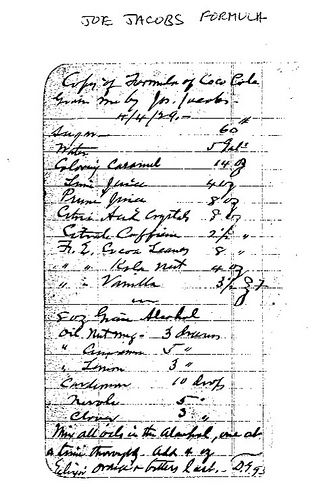 JOE JACOBS FORMULA
Copy of Formula of Coco Cola
Given me by Jos. Jacobs -
4/4/29. -
Sugar 60 #
Water 5 Gals
Coloring Caramel 14 oz
Lime Juice 4 oz
Prune Juice 8 oz
Citric Acid Crystals 8 oz
Citrate Caffeine 2 1/2 "
Fl. E. Cocoa Leaves 8 "
" " Kola Nut 4 oz
" " Vanilla 3 1/2
8 oz Grain Alcohol
Oil Nutmeg - 3 Drams
" Cinnamon 5 "
" Lemon 3 "
Cardamon 10 drops
Nerole 5 "
Cloves 3 "
Mix all oils in the Alcohol, one at
a time thoroughly. Add 4 oz
Elixir orange bitters last. -